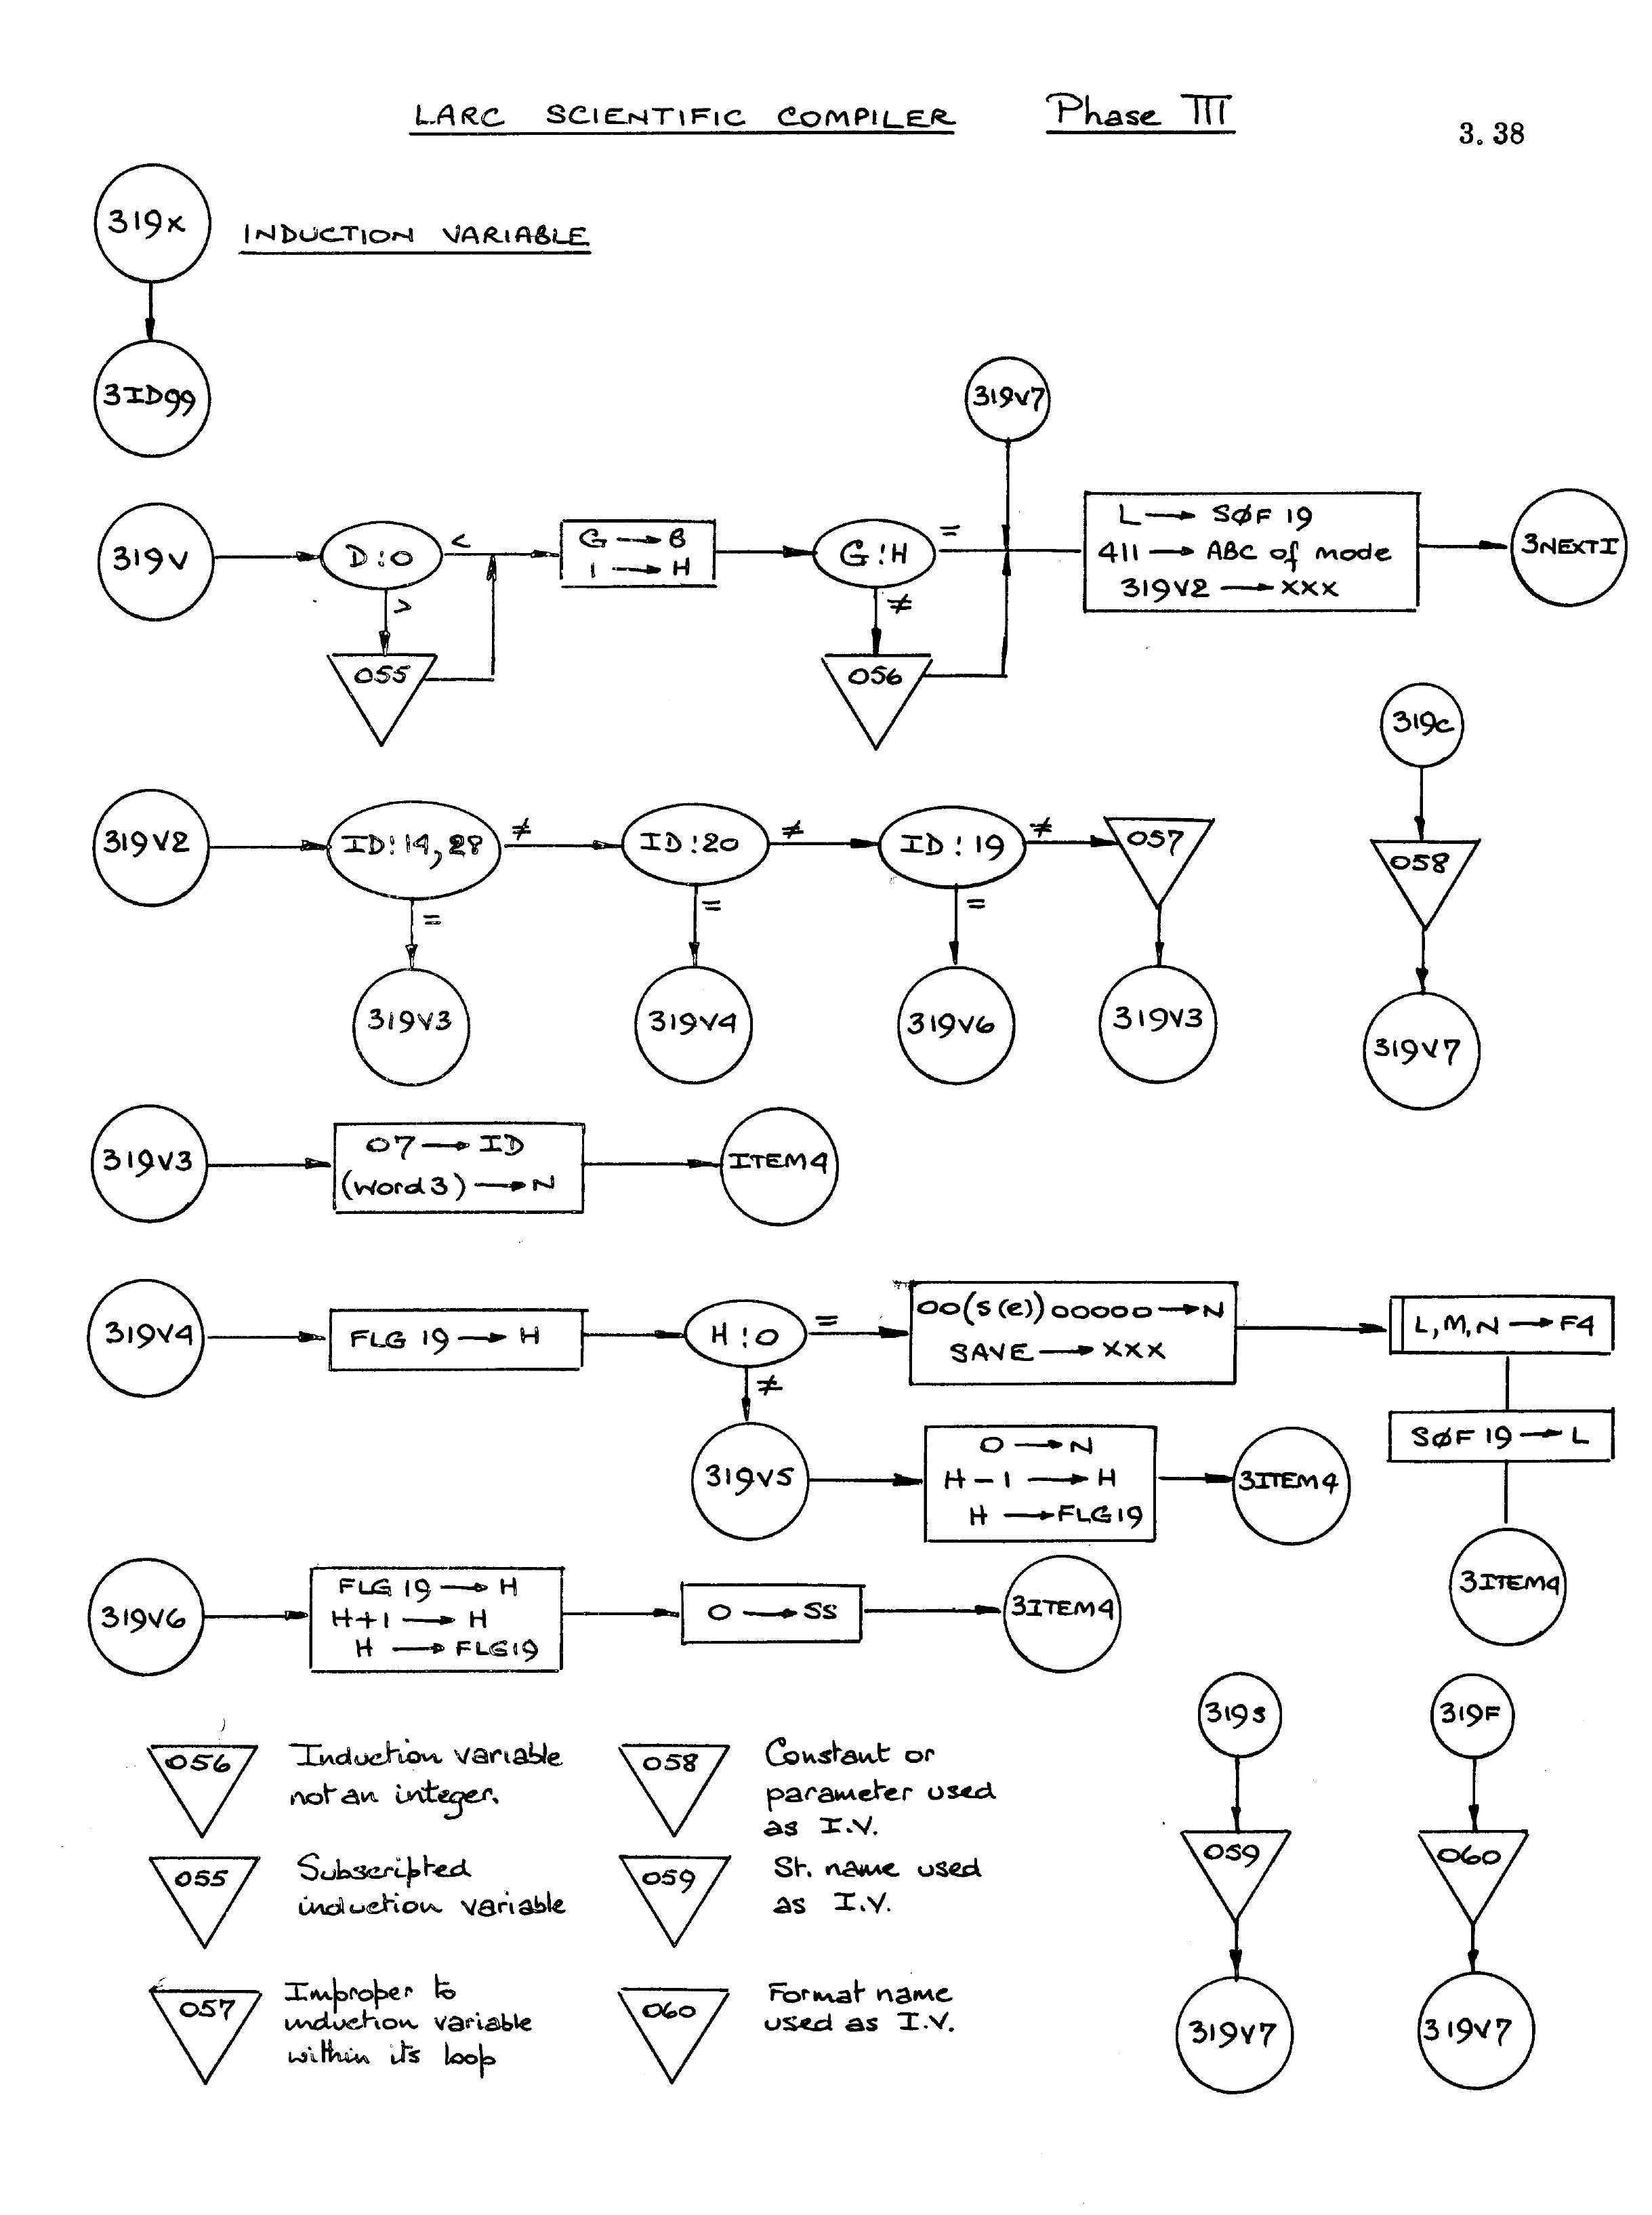 LARC SCIENTIFIC COMPILER Phase III
3.38
319X
INDUCTION VARIABLE
3ID99
319V7
319V
D:0
<
>
055
G → B
1 → H
G:H
=
≠
056
L → SØF 19
411 → ABC of mode
319V2 → XXX
3NEXTI
319C
058
319V7
319V2
ID:14,28
≠
=
ID:20
≠
=
ID:19
≠
=
057
319V3
319V4
319V6
319V3
319V3
07 → ID
(Word 3) → N
ITEM4
319V4
FLG 19 → H
H:0
=
≠
00(S(e))00000 → N
SAVE → XXX
L, M, N → F4
SØF 19 → L
3ITEM4
319V5
0 → N
H-1 → H
H → FLG19
3ITEM4
319V6
FLG 19 → H
H+1 → H
H → FLG19
0 → SS
3ITEM4
319S
059
319V7
319F
060
319V7
056
Induction variable
not an integer.
058
Constant or
parameter used
as I.V.
055
Subscripted
induction variable
059
St. name used
as I.V.
057
Improper to
induction variable
within its loop
060
Format name
used as I.V.